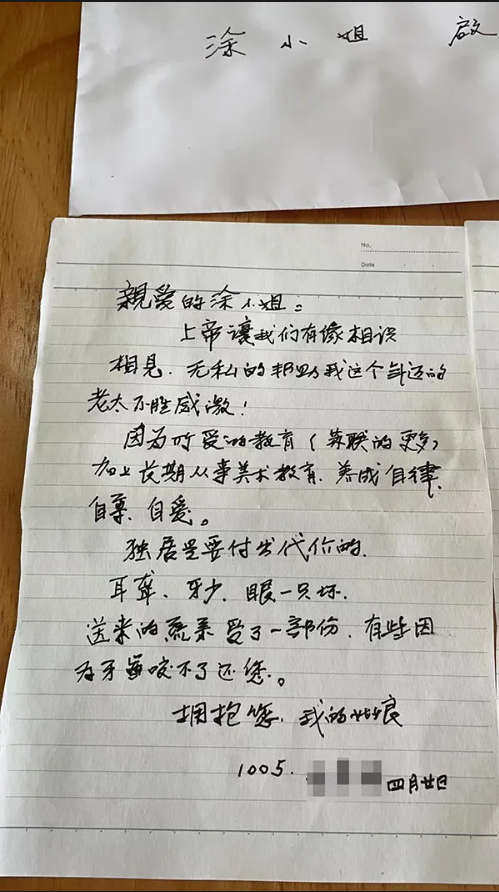 涂小姐 启
No.
Date
親爱的涂小姐:
上帝讓我们有缘相识
相见.无私的邦助我这个年迈的
老太不胜感激!
因为所受的教育(苏联的更多)
加上长期从事美术教育.养成自律.
自尊.自爱。
独居是要付出代价的.
耳聋、牙少、眼一只坏.
送来的蔬菜受了一部份.有些因
为牙齿咬不了还您。
拥抱您.我的姑娘
1005.
四月廿日